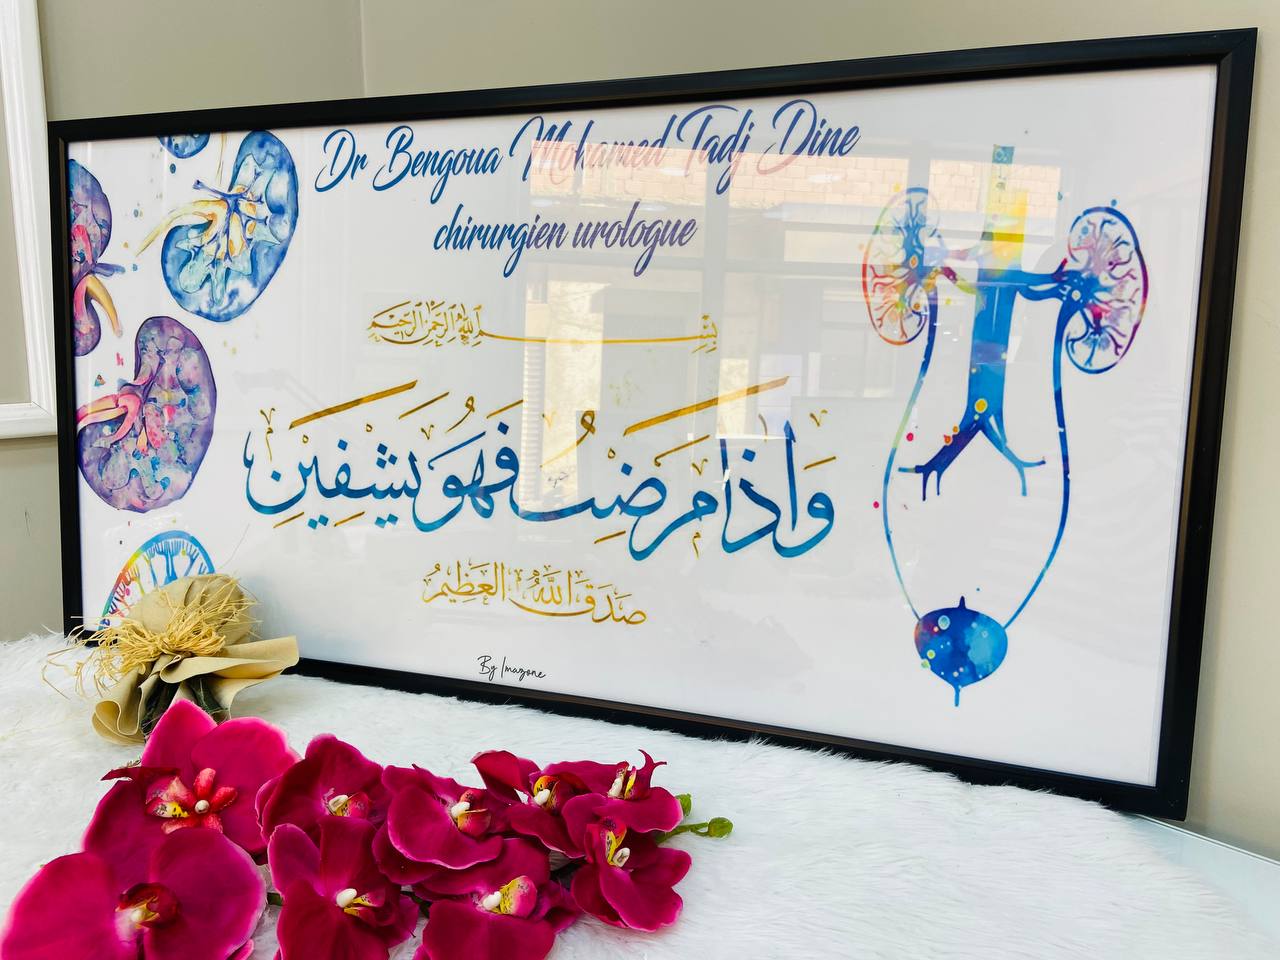 Dr Bengoua Mohamed Tadj Dine
chirurgien urologue
بِسْمِ اللهِ الرَّحْمَنِ الرَّحِيمِ
وَإِذَا مَرَضْتُ فَهُوَ يَشْفِيَنِ
صَدَقَ اللهُ العَظِيمُ
By Imazone